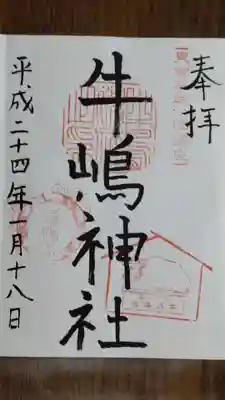 奉拝
牛嶋神社
平成二十四年一月十八日